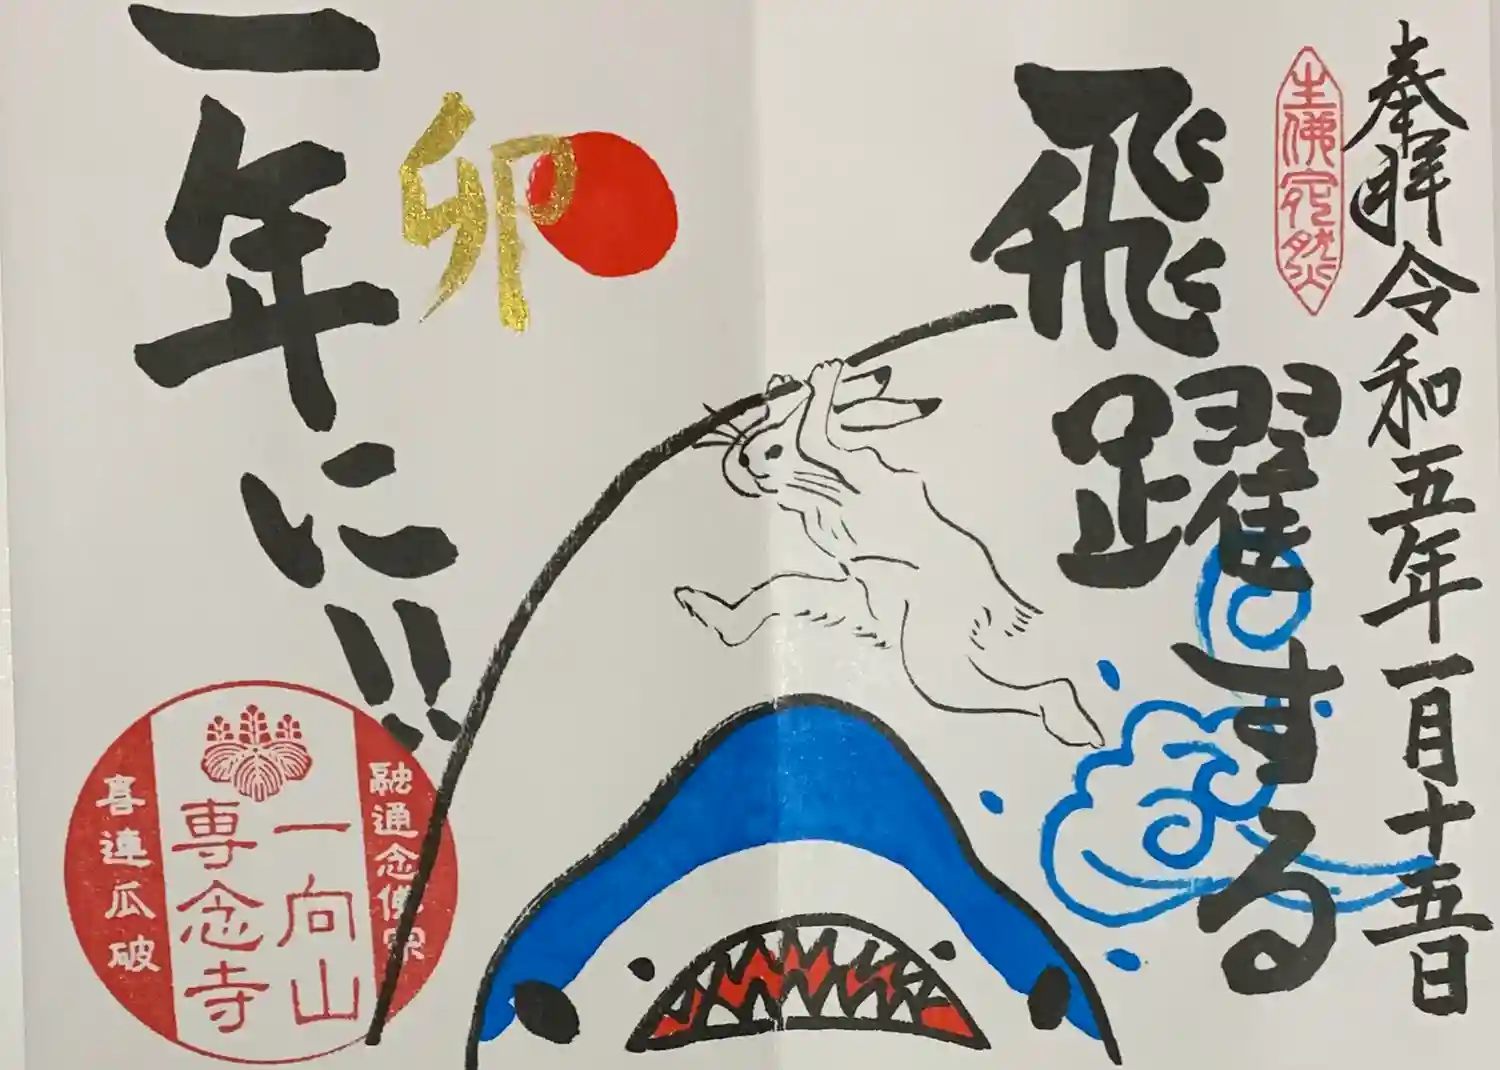 奉拝 令和五年一月十五日
生佛宛然
飛躍する
卯
一年に!!
融通念佛宗
一向山
専念寺
喜連瓜破